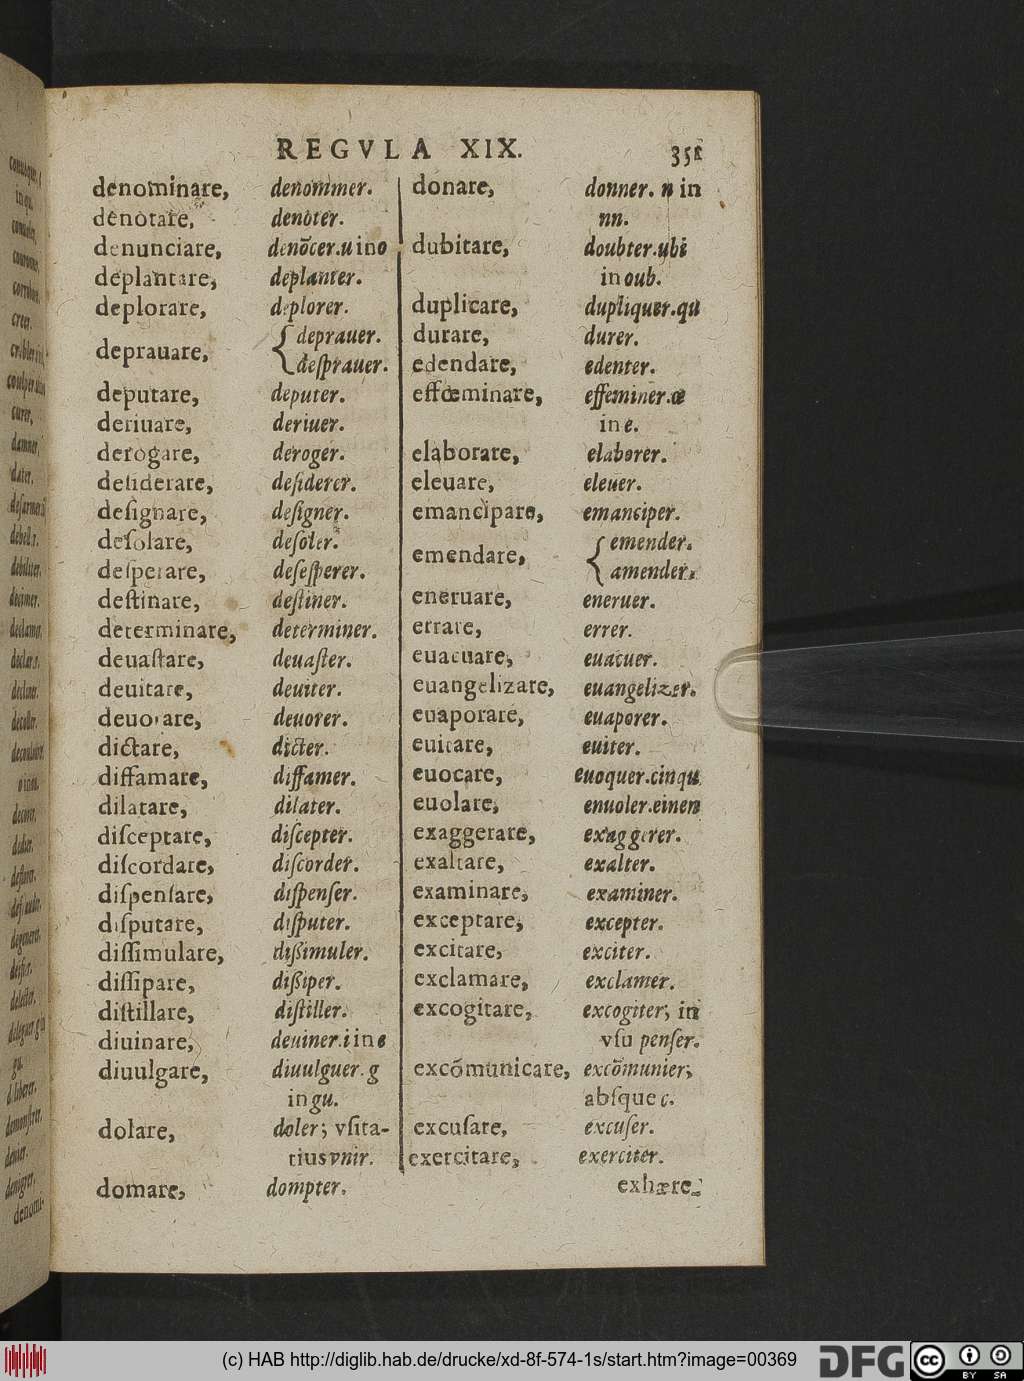 REGVLA XIX. 351
denominare, denommer.
denotare, denoter.
denunciare, denõcer.u in o
deplantare, deplanter.
deplorare, deplorer.
deprauare, { deprauer.
deſprauer.
deputare, deputer.
deriuare, deriuer.
derogare, deroger.
deſiderare, deſiderer.
deſignare, deſigner.
deſolare, deſoler.
deſperare, deſeſperer.
deſtinare, deſtiner.
determinare, determiner.
deuaſtare, deuaſter.
deuitare, deuiter.
deuorare, deuorer.
dictare, dicter.
diffamare, diffamer.
dilatare, dilater.
diſceptare, diſcepter.
diſcordare, diſcorder.
diſpenſare, diſpenſer.
diſputare, diſputer.
diſſimulare, dißimuler.
diſſipare, dißiper.
diſtillare, diſtiller.
diuinare, deuiner.i in e
diuulgare, diuulguer.g
in gu.
dolare, doler; vſita-
tius vnir.
domare, dompter.
donare, donner. n in
nn.
dubitare, doubter.ubi
in oub.
duplicare, dupliquer.qu
durare, durer.
edendare, edenter.
effœminare, effeminer.œ
in e.
elaborare, elaborer.
eleuare, eleuer.
emancipare, emanciper.
emendare, { emender.
amender.
eneruare, eneruer.
errare, errer.
euacuare, euacuer.
euangelizare, euangelizer.
euaporare, euaporer.
euitare, euiter.
euocare, euoquer.cinqu
euolare, enuoler.einen
exaggerare, exaggerer.
exaltare, exalter.
examinare, examiner.
exceptare, excepter.
excitare, exciter.
exclamare, exclamer.
excogitare, excogiter; in
vſu penſer.
excõmunicare, excõmunier;
abſque c.
excuſare, excuſer.
exercitare, exerciter.
exhære-
(c) HAB http://diglib.hab.de/drucke/xd-8f-574-1s/start.htm?image=00369
DFG
cc BY SA